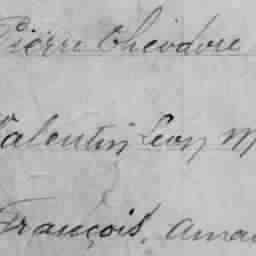 Pierre Théodore
Valentin, Léon M
François, Amar